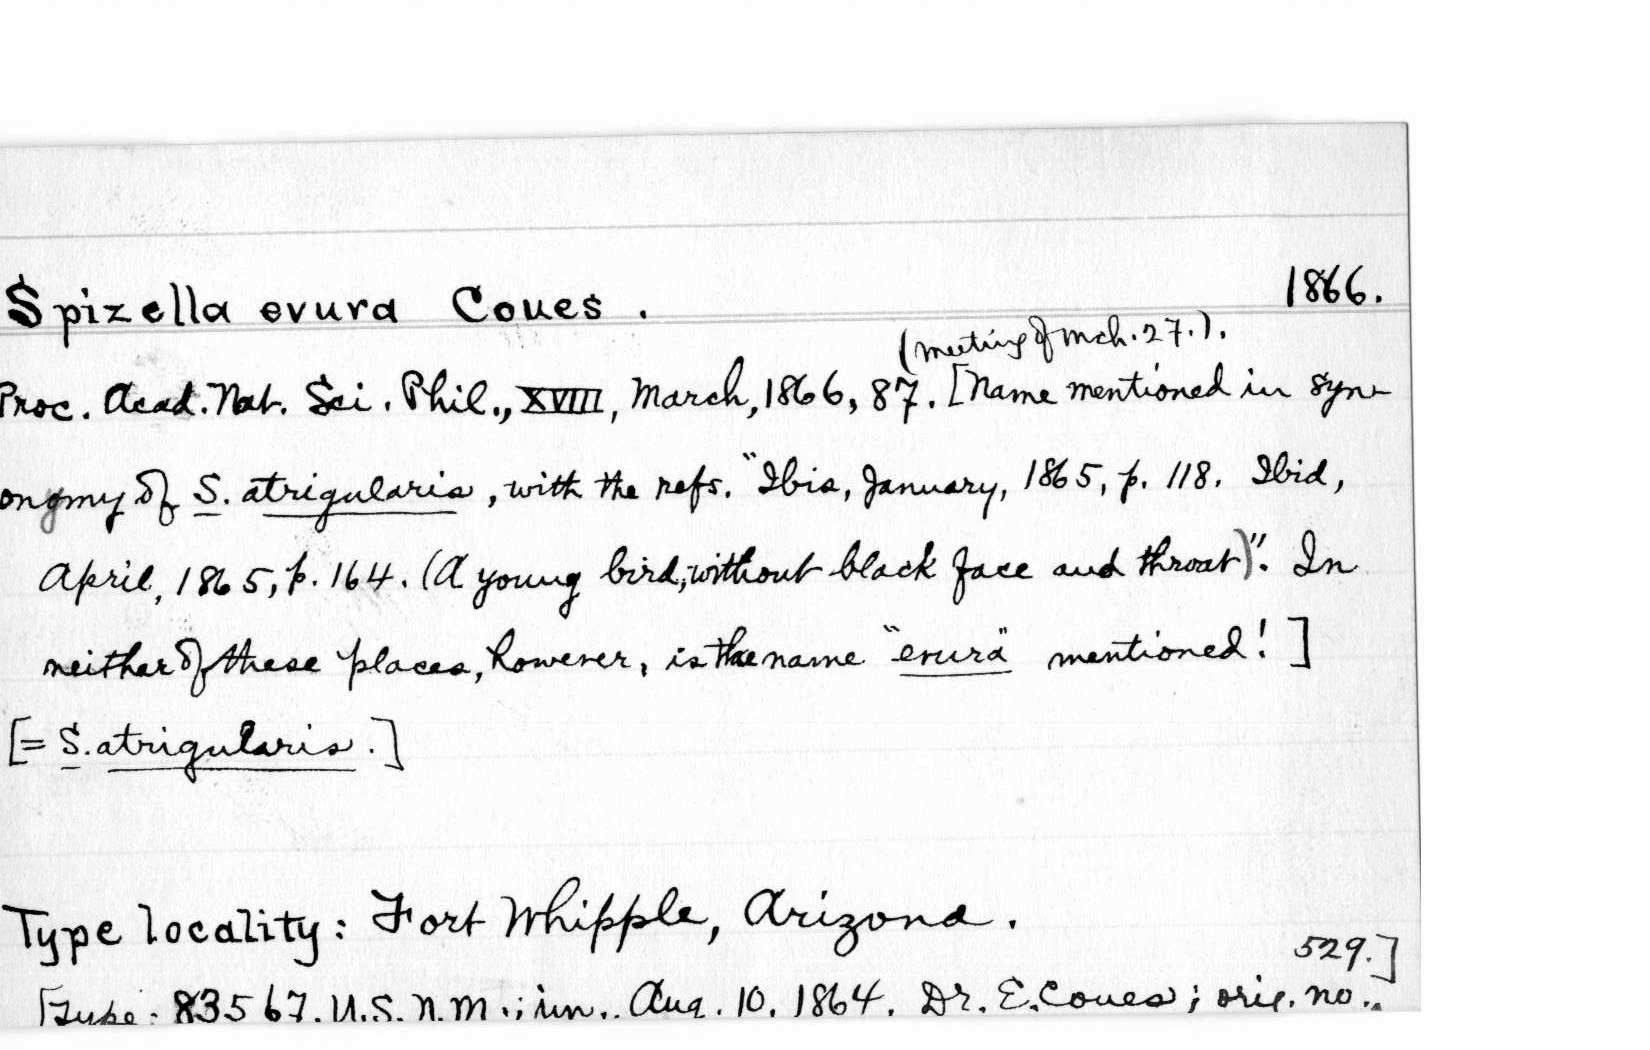 Spizella evura Coues. 1866.
(meeting of Mch. 27.).
Proc. Acad. Nat. Sci. Phil., XVIII, March, 1866, 87. [Name mentioned in syn-
onymy of S. atrigularis, with the refs. "Ibis, January, 1865, p. 118. Ibid,
April, 1865, p. 164. (A young bird, without black face and throat)". In
neither of these places, however, is the name "evura" mentioned!]
[= S. atrigularis.]
Type locality: Fort Whipple, Arizona.
529.]
[Type: 83567. U.S.N.M.; im.. Aug. 10, 1864. Dr. E. Coues; orig. no..